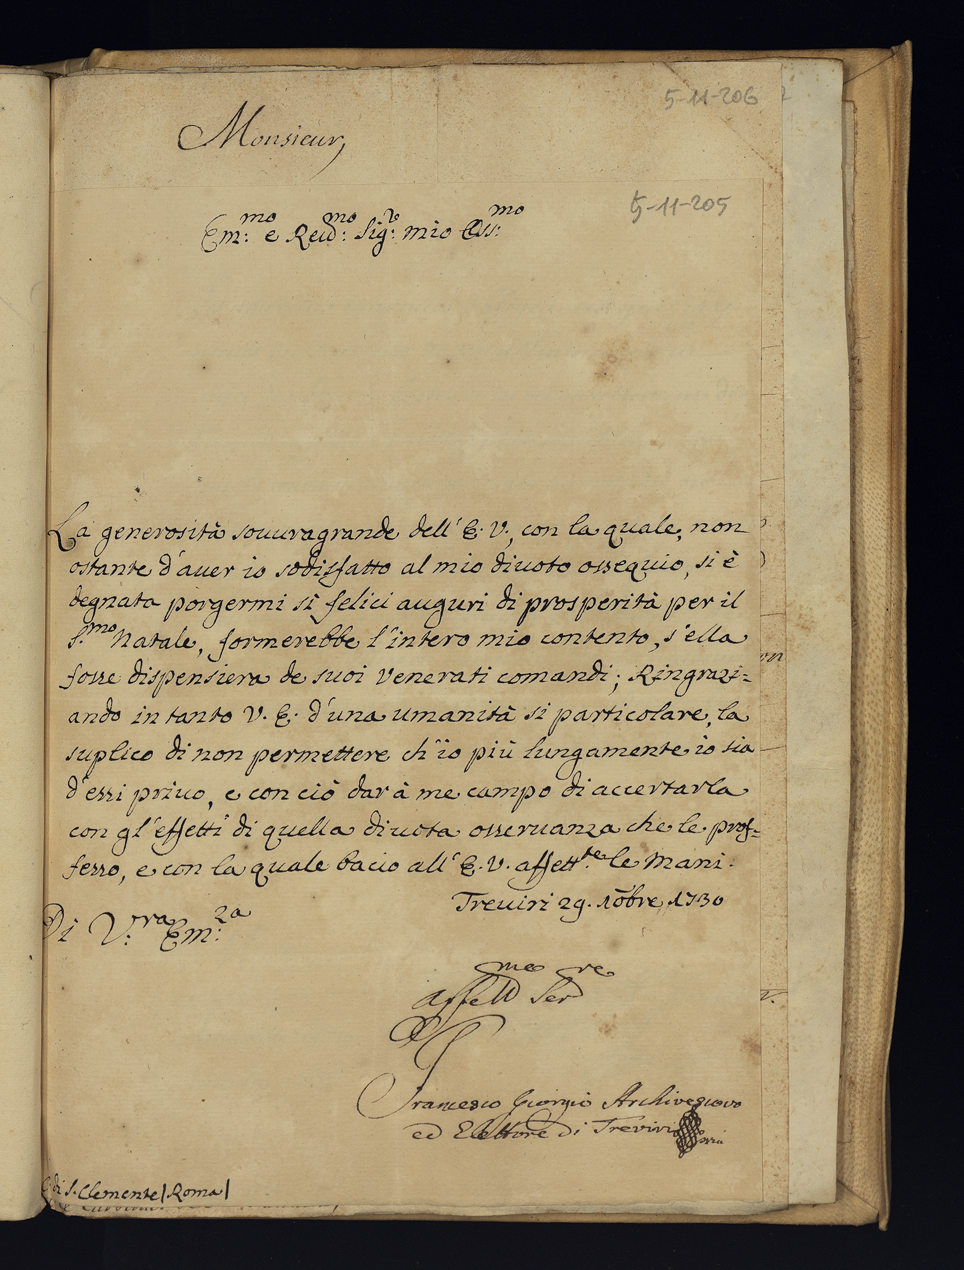 5-11-206
Monsieur,
5-11-205
Em:mo e Reud:mo Sig:re mio Oss:mo
La generosità souuragrande dell' E. V., con la quale, non
ostante d'auer io sodisfatto al mio diuoto ossequio, si è
degnata porgermi sì felici auguri di prosperità per il
S.mo Natale, formerebbe l'intero mio contento, s'ella
fosse dispensiera de suoi venerati comandi; Ringrazi=
ando in tanto V. E. d'una umanità si particolare, la
suplico di non permettere ch'io più lungamente io sia
d'essi priuo, e con ciò dar à me campo di accertarla
con gl'effetti di quella diuota osseruanza che le prof=
fesso, e con la quale bacio all' E. V. affett:te le mani.
Treuiri 29. 10bre 1730
Di V:ra Em:za
affett:mo Ser:re
Francesco Giorgio Arcivescovo
ed Elettore di Treviri
di S. Clemente / Roma /